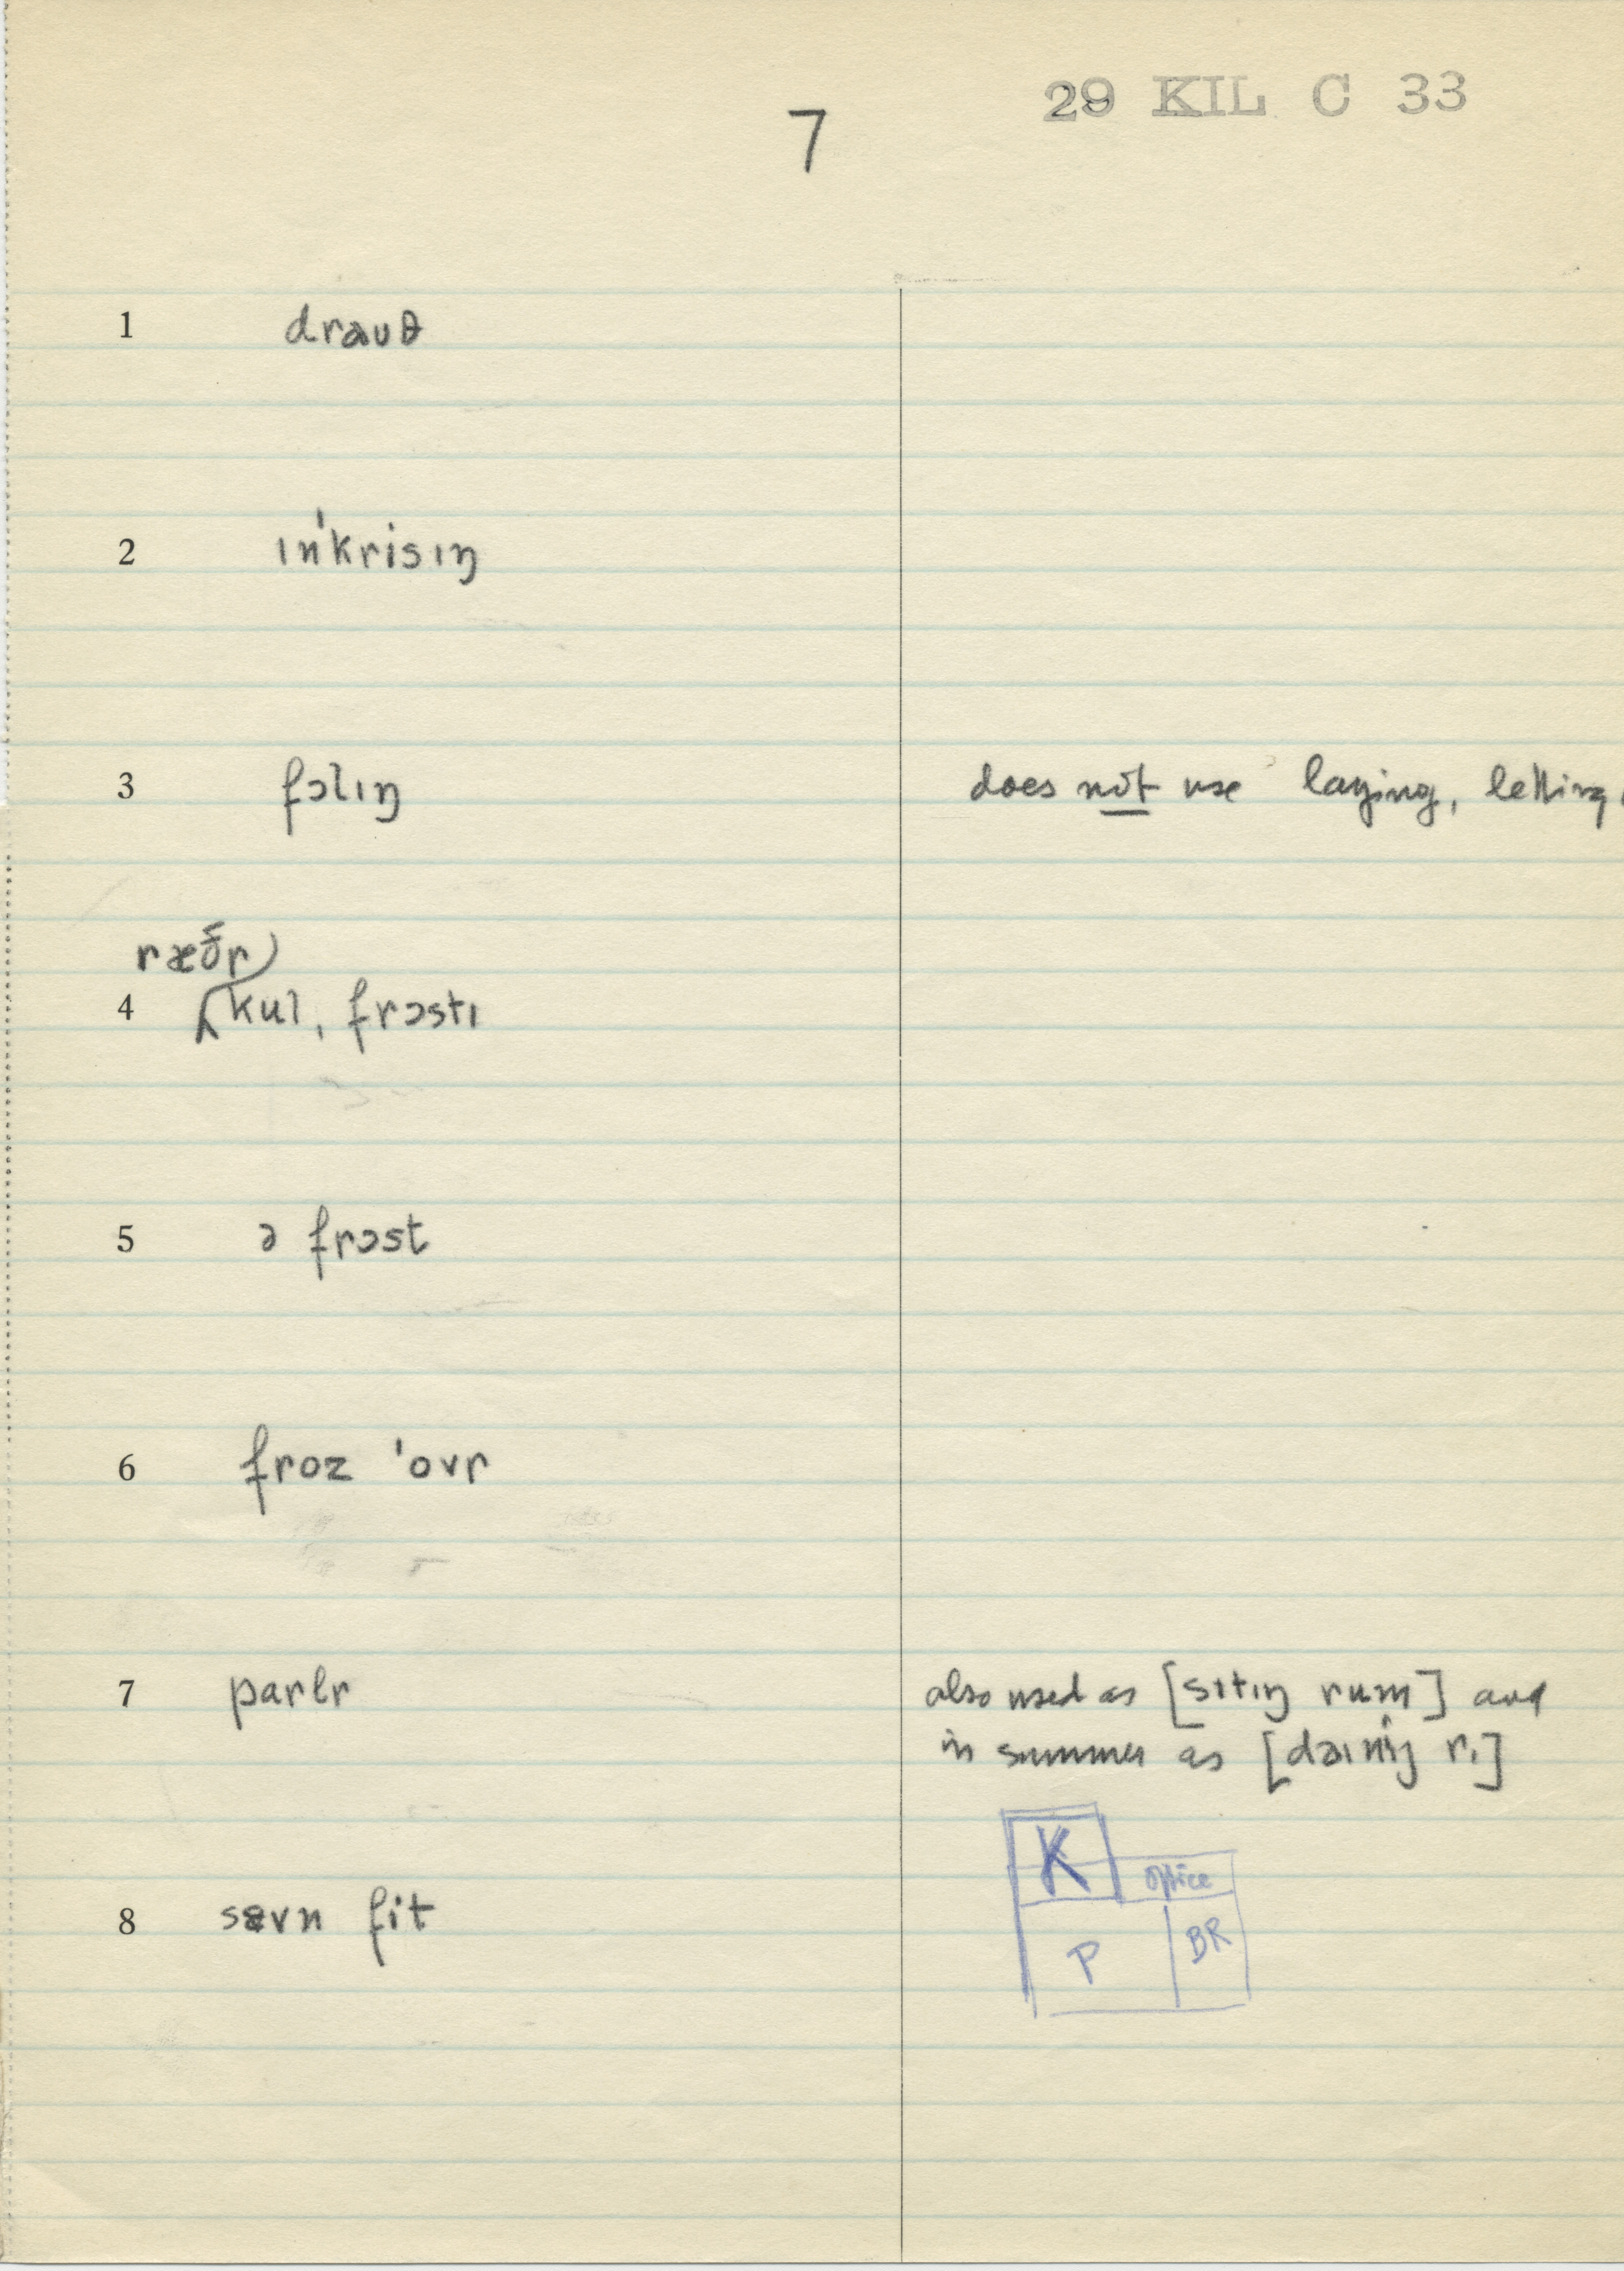 29 KIL C 33
7
1 drauθ
2 ɪn'krisɪŋ
3 fɔlɪŋ does not use laying, letting
ræðr
4 kul, frɔstɪ
5 ə frɔst
6 froz 'ovr
7 parlr also used as [sɪtɪŋ rum] and
in summer as [dəɪnɪŋ r.]
K
office
8 sɛvn fit
P BR